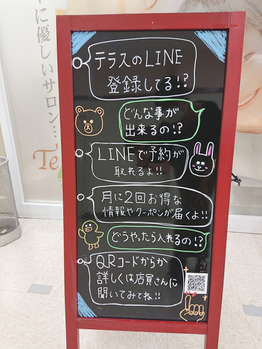 に優しいサロン…
Te
テラスのLINE
登録してる!?
どんな事が
出来るの!?
LINEで予約が
取れるよ!!
月に2回お得な
情報やクーポンが届くよ!!
どうやったら入れるの!?
QRコードからか
詳しくは店員さんに
聞いてみてね!!